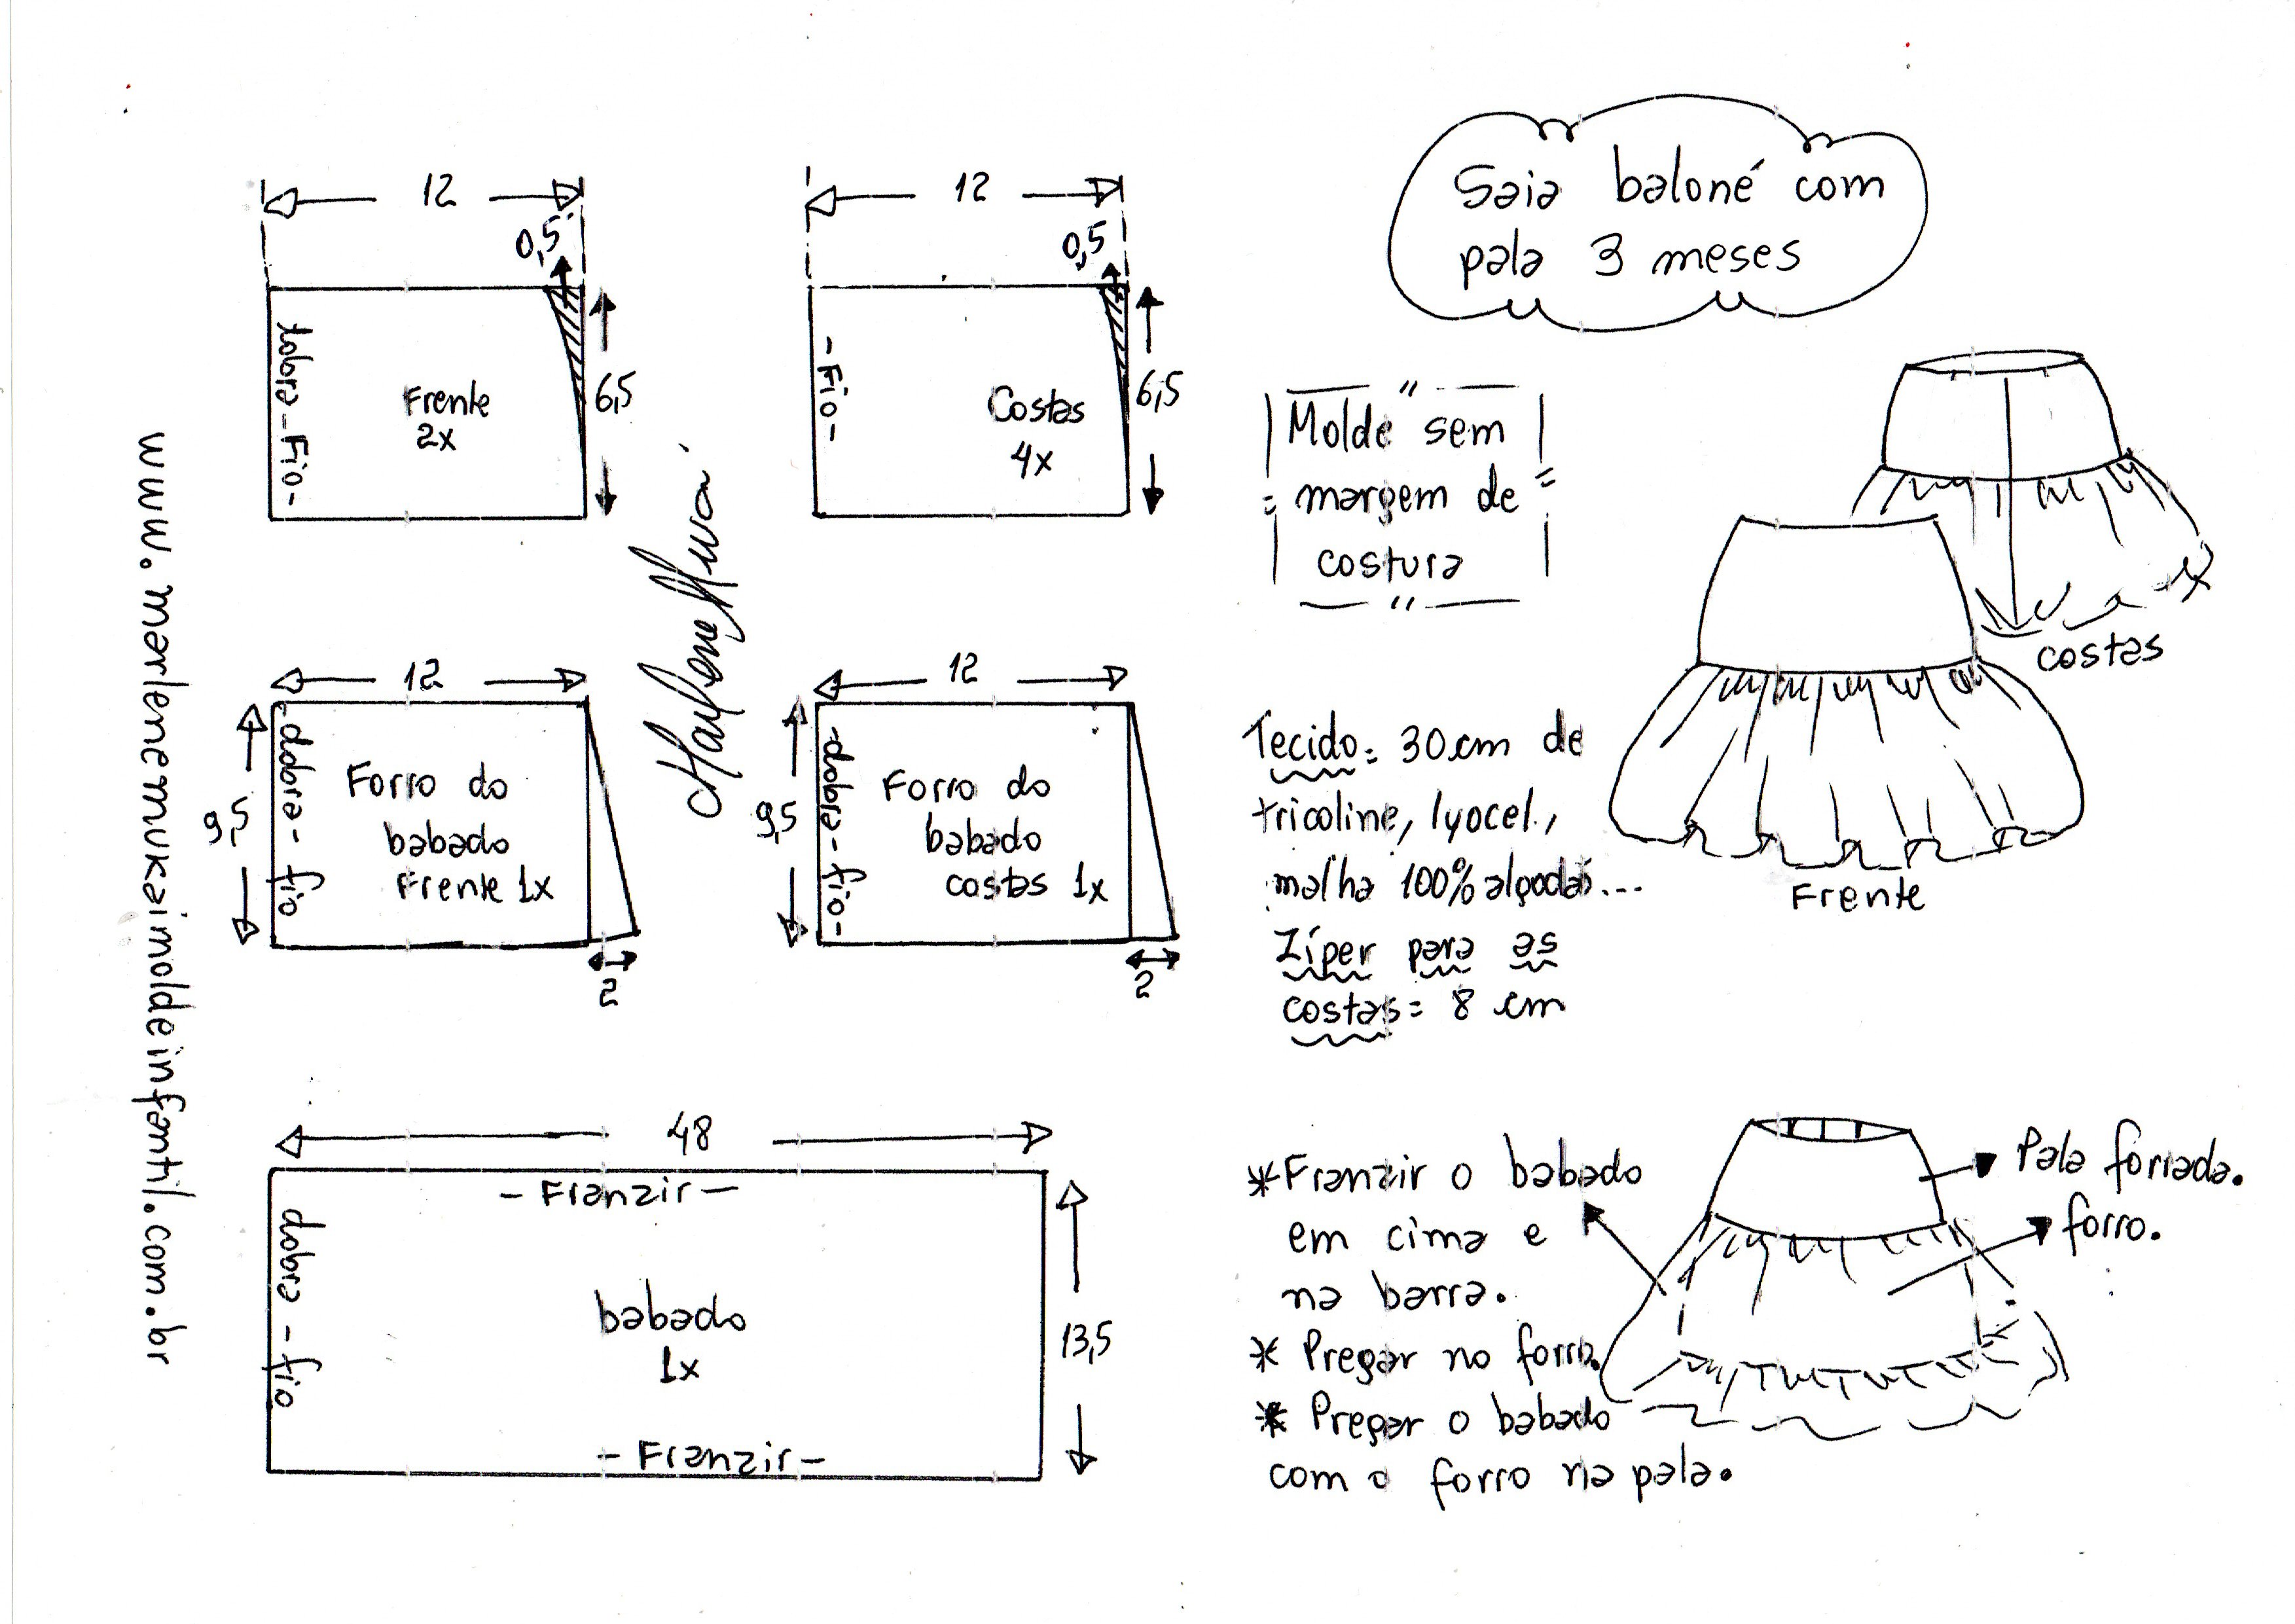 Saia baloné com
pala 3 meses
12
0,5
dobra - Fio -
Frente
2x
6,5
12
0,5
- Fio -
Costas
4x
6,5
Molde sem
margem de
costura
costas
Frente
12
9,5
- dobra - fio
Forro do
babado
Frente 1x
2
12
9,5
- dobra - fio -
Forro do
babado
costas 1x
2
Marlene Mukai
www.marlenemukaimoldeinfantil.com.br
Tecido: 30cm de
tricoline, lyocel.,
malha 100% algodão...
Zíper para as
costas = 8 cm
48
- Franzir -
dobra - fio
babado
1x
13,5
- Franzir -
*Franzir o babado
em cima e
na barra.
* Pregar no forro.
* Pregar o babado
com o forro na pala.
Pala forrada.
forro.